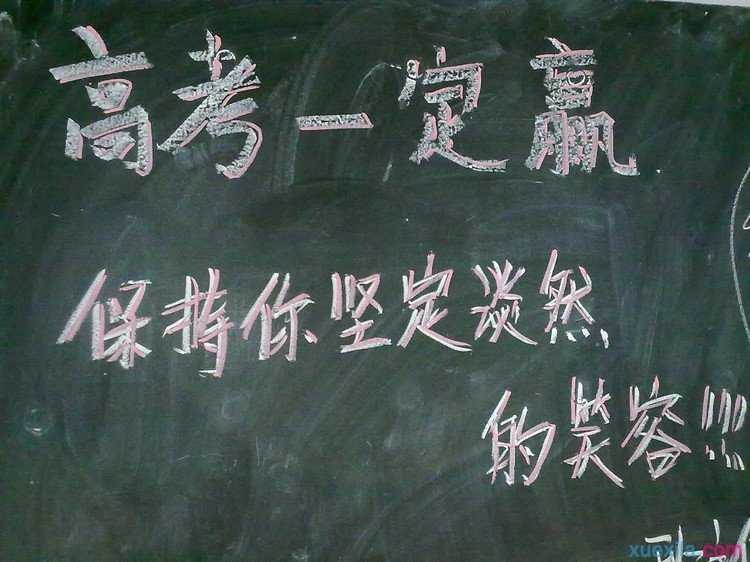 高考一定赢
保持你坚定淡然
的笑容!!!
xuexila.com